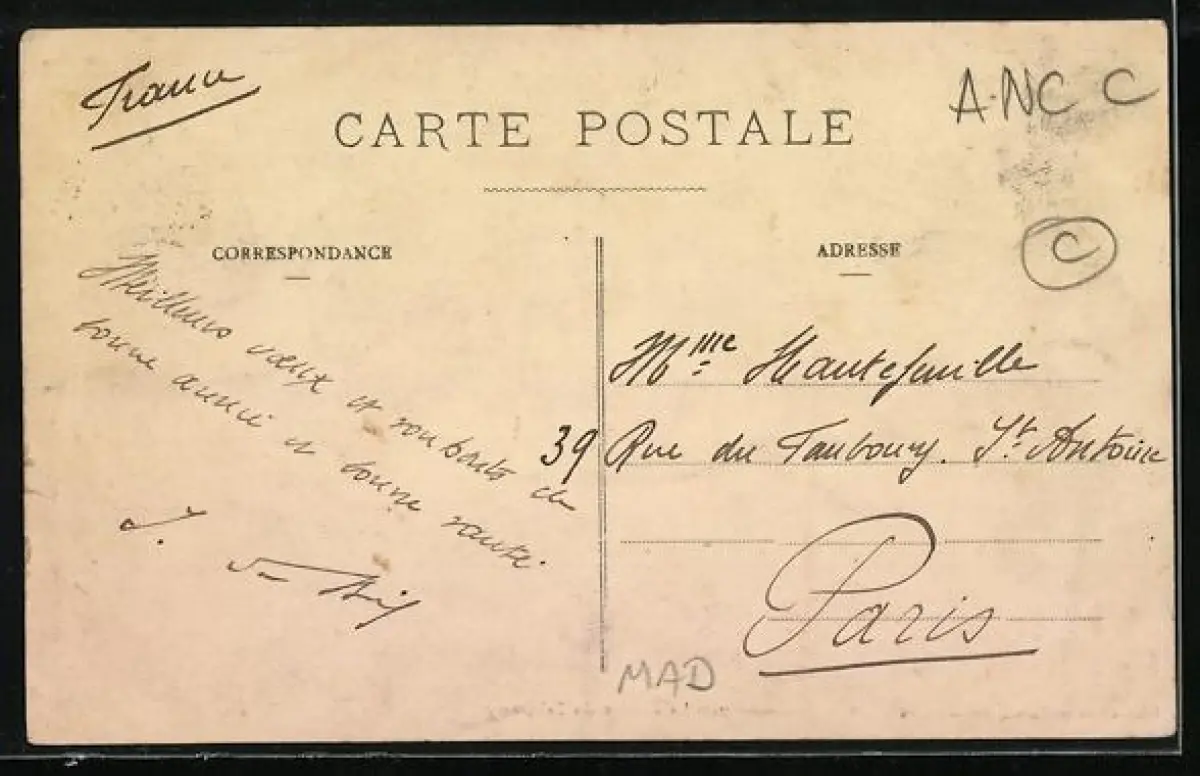 France
CARTE POSTALE
A.NC C
C
CORRESPONDANCE
Meilleurs vœux et souhaits de
bonne année et bonne santé.
J.
ADRESSE
Mme Hautefeuille
39 Rue du Faubourg. St Antoine
Paris
MAD